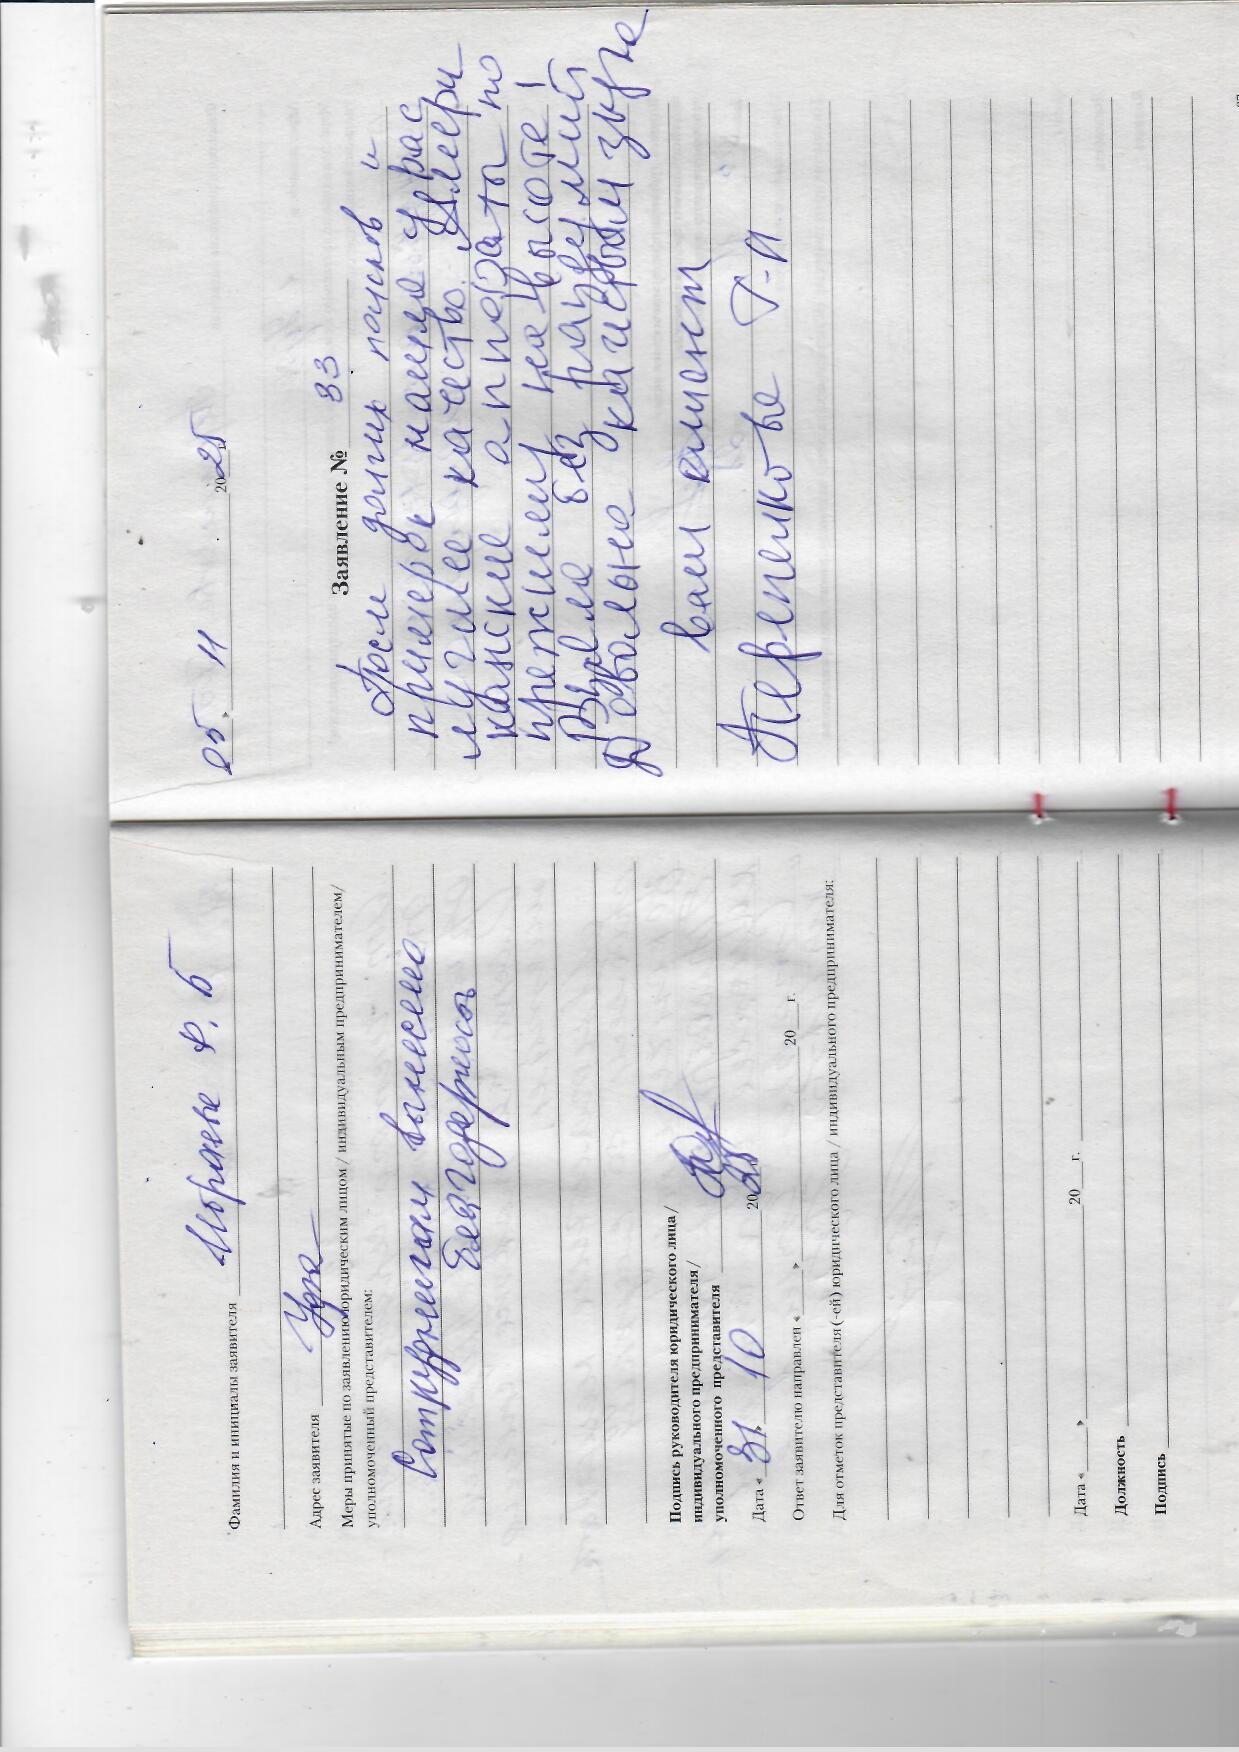 Фамилия и инициалы заявителя Ф. Б
Адрес заявителя Уфа
Меры принятые по заявлению юридическим лицом / индивидуальным предпринимателем/
уполномоченный представителем:
Сотрудникам вынесена
благодарность
Подпись руководителя юридического лица /
индивидуального предпринимателя /
уполномоченного представителя
Дата «31» 10 2025
Ответ заявителю направлен «____» 20___г.
Для отметок представителя (-ей) юридического лица / индивидуального предпринимателя:
Дата «____» 20___г.
Должность
Подпись
05 » 11 2025
Заявление № 33
После долгих поисков и
примерок нашла у вас
лучшее качество. Амери
канские аппараты по
прежнему на высоте!
Взяла без раздумий
Довольна качеством звука
ваш клиент
Перепелкова Г-И